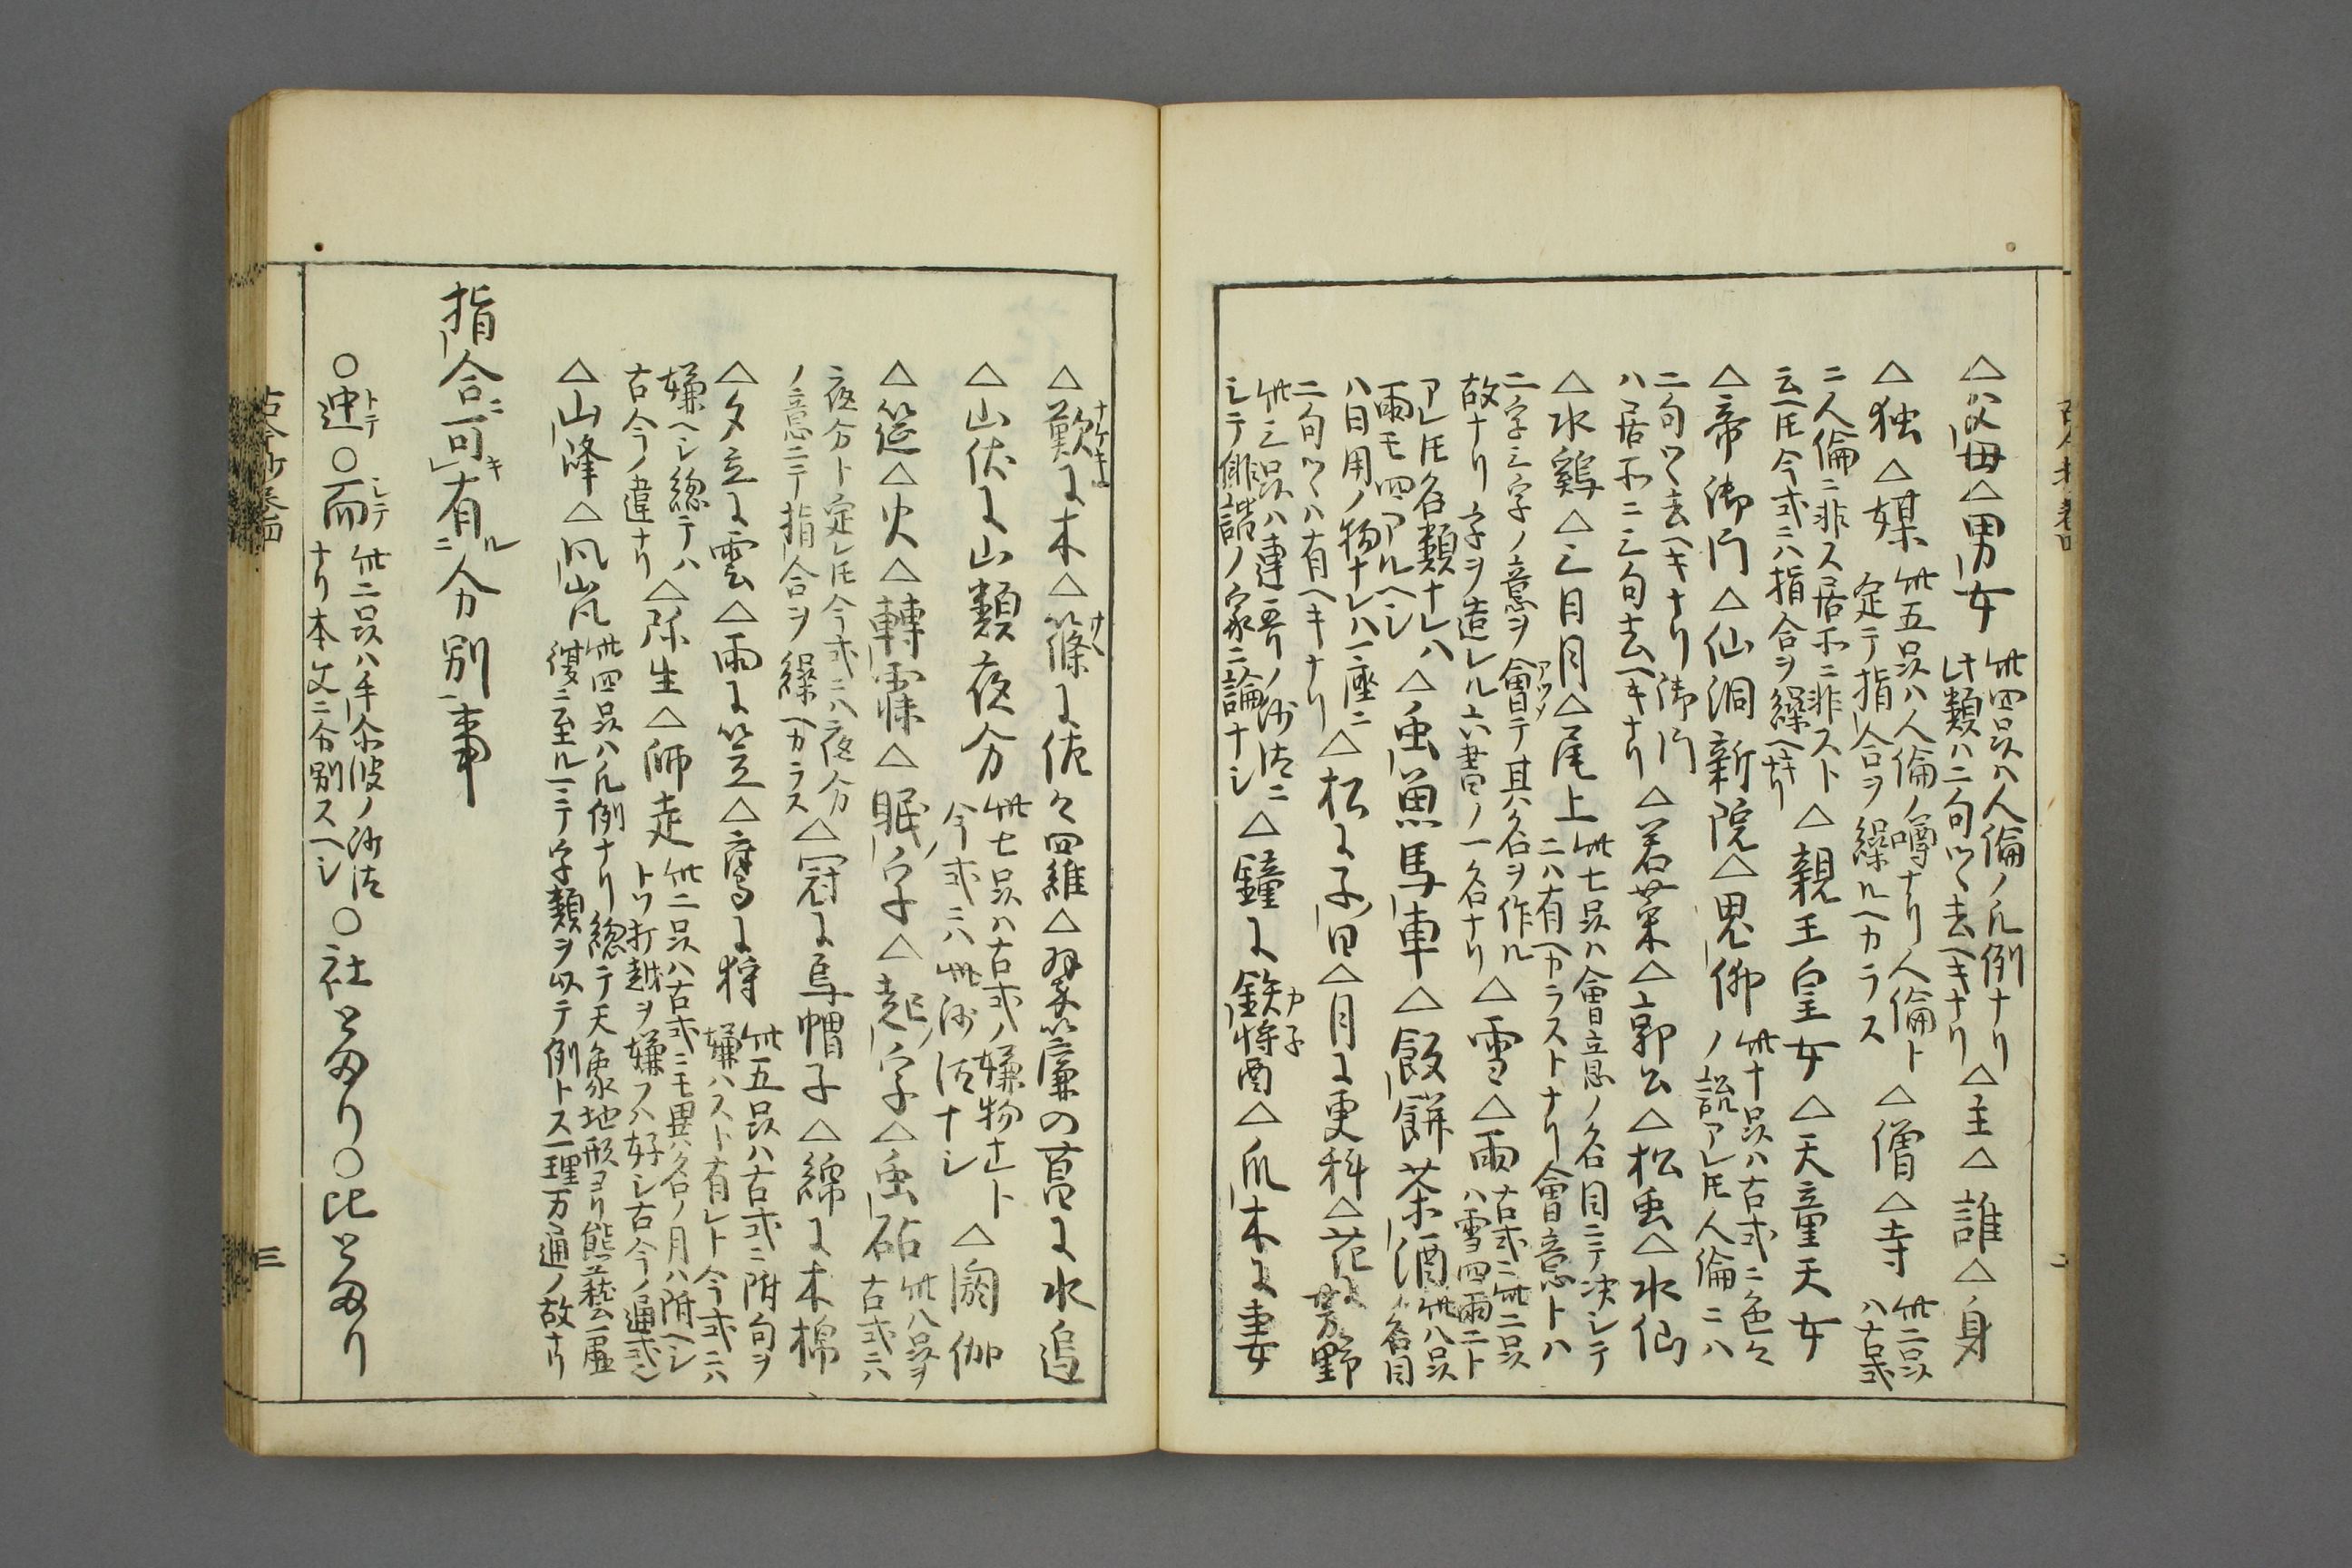 △父母△男女 此四品ハ人倫ノ凡例ナリ
此類ハ二句ツヽ去ヘキナリ △主△誰△身
△独△媒 此五品ハ人倫ノ噂ナリ人倫ト
定テ指合ヲ繰ルヘカラス △僧△寺 此二品
ハ古式
ニ人倫ニ非ス居所ニ非スト
云𪜈今式ニハ指合ヲ繰ヘキナリ △親王皇女△天童天女
△帝御門△仙洞新院△鬼仙 此十品ハ古式ニ色々
ノ説アレ𪜈人倫ニハ
二句ツヽ去ヘキナリ御門
ハ居所ニ三句去ヘキナリ △若菜△郭公△松虫△水仙
△水鶏△三日月△尾上 此七品ハ會意ノ名目ニテ決シテ
ニハ有ヘカラストナリ會意トハ
二字三字ノ意ヲ會テ其名ヲ作ル
故ナリ字ヲ造レル六書ノ一名ナリ △雪△雨 古式ニ此二品
ハ雪四雨二ト
アレ𪜈各類ナレハ
雨モ四アルヘシ △虫魚馬車△飯餅茶酒 此八品
ノ名目
ハ日用ノ物ナレハ一座ニ
二句ツヽハ有ヘキナリ △松ニ子日△月ニ更科△花ニ芳野
此三品ハ連哥ノ沙汰ニ
シテ俳諧ノ家ニ論ナシ △鐘ニ鉄将酉△爪木ニ妻
△歎ニ木△篠ニ佐々四維△翠簾の莒ニ水烏
△山伏ニ山類夜分 此七品ハ古式ノ嫌物ナレト
今式ニハ此沙汰ナシ △閼伽
△筵△火△轉寐△眠ノ字△起ノ字△虫砧 此八品ヲ
古式ニハ
夜分ト定レ𪜈今式ニハ夜分
ノ意ニテ指合ヲ繰ヘカラス △冠ニ烏帽子△綿ニ木棉
△夕立ニ雲△雨ニ笠△鷹ニ狩 此五品ハ古式ニ附句ヲ
嫌ハスト有レト今式ニハ
嫌ヘシ總テハ
古今ノ違ナリ △弥生△師走 此二品ハ古式ニモ異名ノ月ハ附ヘシ
トツ打越ヲ嫌フハ好シ古今ノ通式
△山峰△風嵐 此四品ハ凡例ナリ總テ天象地形ヨリ
ニ至ルマテ字類ヲ以テ例トス一理万通ノ故ナリ
指合ニ可キ有ル二分別一事
○迚○而 此二品ハ手尓波ノ沙汰
ナリ本文ニ分別スヘシ ○社となり○比となり
三